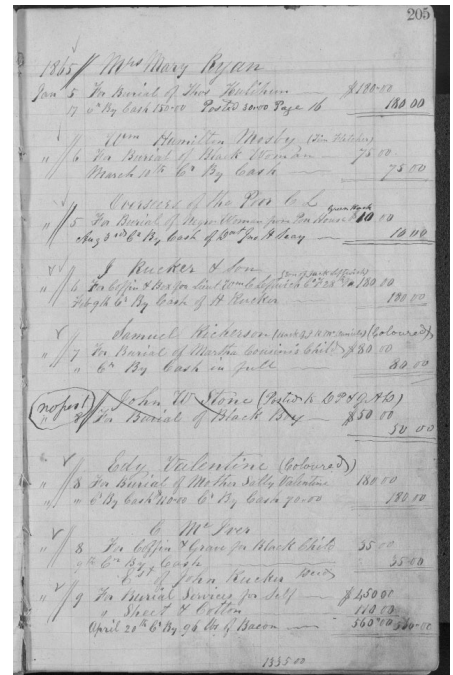 205
1865 // Mrs Mary Ryan
Jan 5 For Burial of Thos $180.00
17 Cr By Cash 150.00 Posted 30.00 Page 16 180 00
Wm Hamilton Mosby
" 6 For Burial of Black Woman 75.00
March 11th Cr By Cash 75.00
Overseers of the Poor C L
" 5 For Burial of Negro Woman from Poor House 10 00
Aug 3rd Cr By Cash of Jas H Seay 10.00
J Rucker & Son
" 6 For Coffin & Box for Lieut 180.00
Feb 9th Cr By Cash of H Rucker 180.00
Samuel Nickerson (Coloured)
" 7 For Burial of Martha Child $80.00
" Cr By Cash in full 80.00
no post // John W Stone (Posted to D P & J A D)
" 8 For Burial of Black Boy $50.00
50 00
Edy Valentine (Coloured)
" 8 For Burial of Mother Sally Valentine 180.00
" " Cr By Cash 110.00 Cr By Cash 70.00 180.00
C McIver
" 8 For Coffin & Grave for Black Child 35.00
9th Cr By Cash 35.00
Est of John Rucker Decd
" 9 For Burial Services for Self $450.00
" Sheet & Cotton 110.00
April 20th Cr By 96 lbs of Bacon 560.00 560.00
1335.00